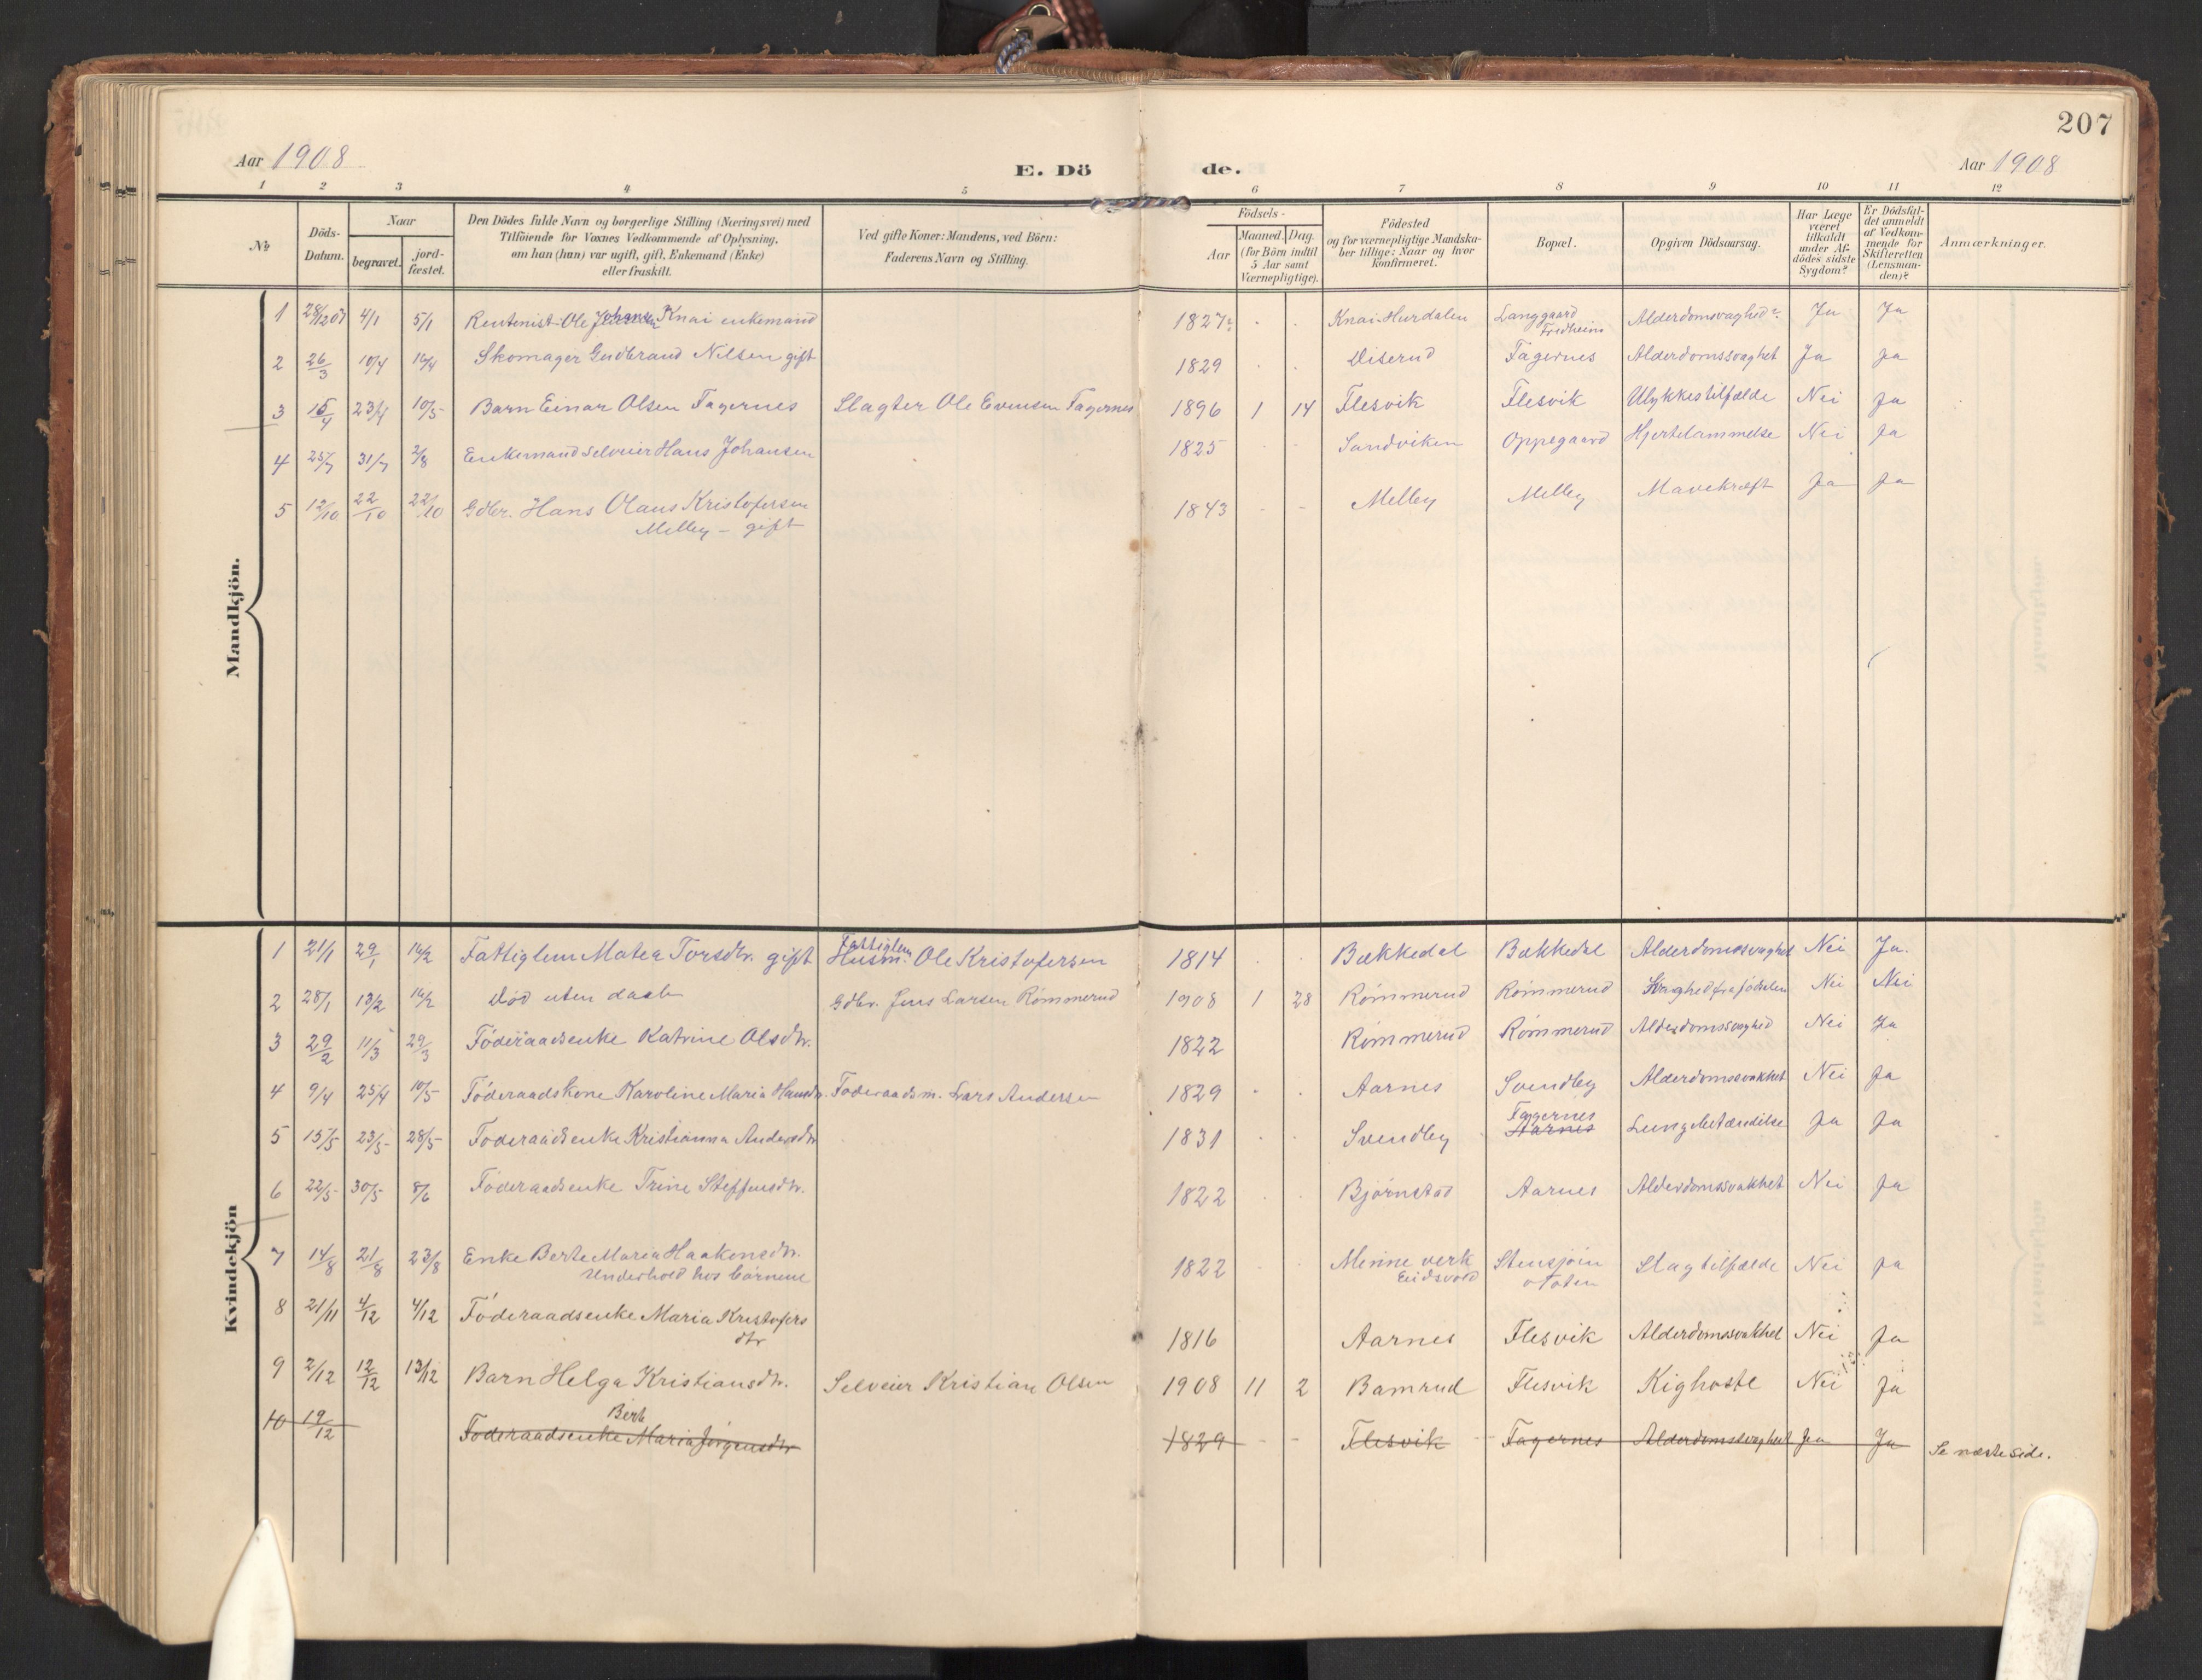 207
Aar 1908 E. Dö de. Aar 1908
1 2 3 4 5 6 7 8 9 10 11 12
№
Döds-Datum.
Naar
begravet. jordfæstet.
Den Dödes fulde Navn og borgerlige Stilling (Næringsvei) med
Tilföiende for Voxnes Vedkommende af Oplysning,
om han (hun) var ugift, gift, Enkemand (Enke)
eller fraskilt.
Ved gifte Koner: Mandens, ved Börn:
Faderens Navn og Stilling.
Födsels-
Aar Maaned. Dag.
(for Börn indtil
5 Aar samt
Værnepligtige).
Födested
og for værnepligtige Mandskaber tillige: Naar og hvor
konfirmeret.
Bopæl.
Opgiven Dödsaarsag.
Har Læge
været
tilkaldt
under Afdödes sidste
Sygdom?
Er Dödsfaldet anmeldt
af Vedkommende for
Skifteretten
(Lensmanden)?
Anmærkninger.
Mandkjön.
1 28/12 07 4/1 5/1 Rentenist Ole Johansen Knai enkemand 1827 Knai-Hurdalen Langgaard Fredheim Alderdomsvaghed Ja Ja
2 26/3 10/4 16/4 Skomager Gudbrand Nilsen gift 1829 Diserud Fagernes Alderdomssvaghet Ja Ja
3 15/4 23/4 10/5 Barn Einar Olsen Fagernes Slagter Ole Evensen Fagernes 1896 1 14 Flesvik Flesvik Ulykkestilfælde Nei Ja
4 25/7 31/7 2/8 Enkemand Selveier Hans Johansen 1825 Sandviken Oppegaard Hjertelammelse Nei Ja
5 12/10 22/10 22/10 Gdbr. Hans Olaus Kristofersen
Melby - gift 1843 Melby Melby Mavekræft Ja Ja
Kvindekjön
1 21/1 29/1 16/2 Fattiglem Matea Torsdtr. gift Fattiglem Husm. Ole Kristofersen 1814 Bækkedal Bækkedal Alderdomssvaghet Nei Ja.
2 28/1 13/2 16/2 Död uten daab Gdbr. Jens Larsen Römmerud 1908 1 28 Römmerud Römmerud Svaghed fra födselen Nei Nei
3 29/2 11/3 29/3 Föderaadsenke Katrine Olsdtr. 1822 Römmerud Römmerud Alderdomssvaghed Nei Ja
4 9/4 25/4 10/5 Föderaadskone Karoline Maria Hansdtr. Föderaadsm. Lars Andersen 1829 Aarnes Svendby Alderdomssvakhet Nei Ja
5 15/5 23/5 28/5 Föderaadsenke Kristianna Andersdtr 1831 Svendby Fagernes Aarnes Lungebetændelse Ja Ja
6 22/5 30/5 8/6 Föderaadsenke Trine Steffensdtr. 1822 Björnstad Aarnes Alderdomssvakhet Nei Ja
7 14/8 21/8 23/8 Enke Berte Maria Haakensdtr.
Underhold hos börnene 1822 Minne verk Eidsvold Stensjöin Toten Slagtilfælde Nei Ja
8 21/11 4/12 4/12 Föderaadsenke Maria Kristofers
dtr 1816 Aarnes Flesvik Alderdomssvakhet Nei Ja
9 2/12 12/12 13/12 Barn Helga Kristiansdtr. Selveier Kristian Olsen 1908 11 2 Bamrud Flesvik Kighoste Nei Ja
10 19/12 Föderaadsenke Bert Maria Jörgensdtr 1829 Flesvik Fagernes Alderdomssvaghed Ja Ja Se næste side.